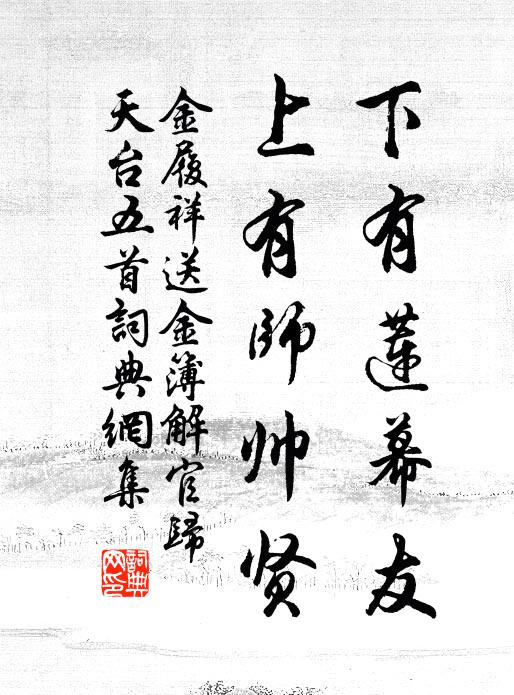 下有莲幕友
上有师帅贤
金履祥送金簿解官歸
天台五首詞典網集
詞典网印